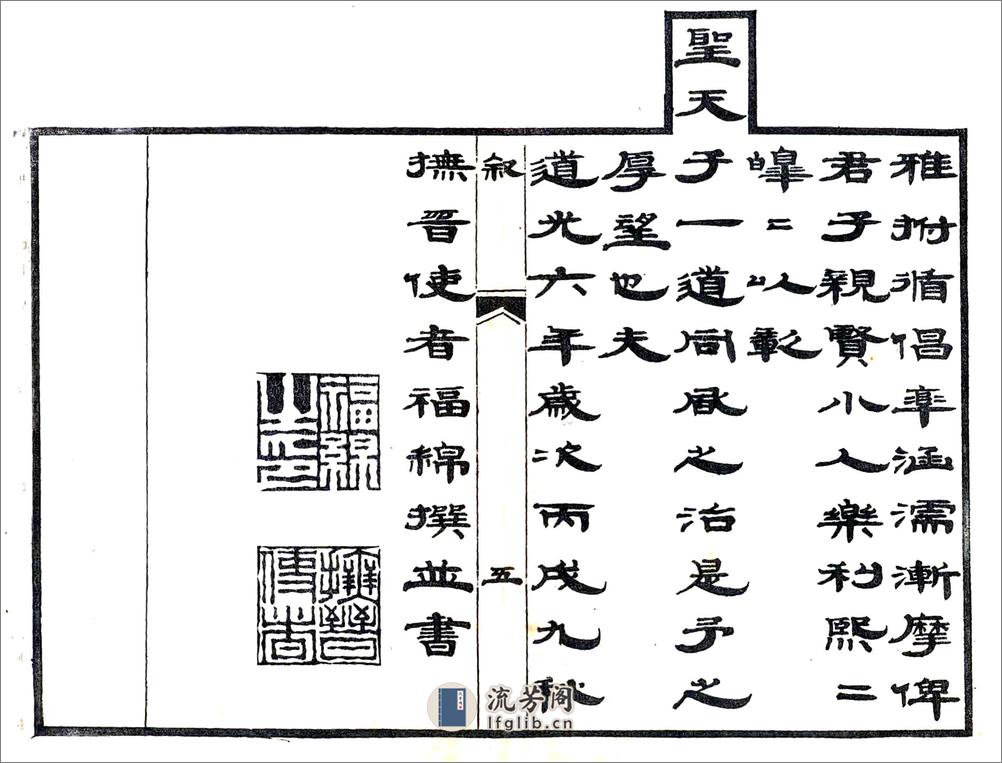 雅拊循倡率涵濡漸摩俾
君子親賢小人樂利熙二
皞二以彰
聖天子一道同風之治是予之
厚望也夫
道光六年歲次丙戌九秋
叙
五
撫晉使者福綿撰並書
福綿
撫晉使者
流芳阁
lfglib.cn